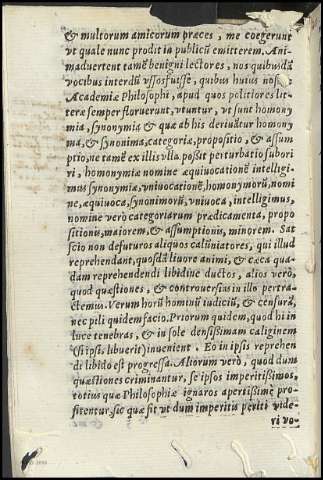 & multorum amicorum præces, me coegerunt
vt quale nunc prodit in publicũ emitterem. Ani-
maduertent tamẽ benigni lectores, nos quibusdã
vocibus interdũ vsos fuisse, quibus huius nos
Academiæ Philosophi, apud quos politiores lit-
teræ semper floruerunt, vtuntur, vt sunt homony
mia, synonymia & quæ ab his deriuãtur homony
ma, & synonima, categoriæ, propositio, & assum
ptio, ne tamẽ ex illis vlla possit perturbatio subori
ri, homonymia nomine æquiuocationẽ intelligi-
mus synonymiæ, vniuocationẽ, homonymorũ, nomi
ne, æquiuoca, synonimorũ, vniuoca, intelligimus,
nomine verò categoriarum prædicamenta, propo
sitionis, maiorem, & assumptionis, minorem. Sat
scio non defuturos aliquos calũniatores, qui illud
reprehendant, quosdã liuore animi, & cæca qua-
dam reprehendendi libidine ductos, alios verò,
quod quæstiones, & controuersias in illo pertra-
ctemus. Verum horũ hominũ iudiciũ, & censurã,
nec pili quidem facio. Priorum quidem, quod hi in
luce tenebras, & in sole densissimam caliginem
(si ipsis libuerit) inuenient. Eo in ipsis reprehen
di libido est progressa. Aliorum verò, quod dum
quæstiones criminantur, se ipsos imperitissimos,
totius quæ Philosophiæ ignaros apertissimè pro-
fitentur, sic quæ fit vt dum imperitis periti vide-
ri vo-